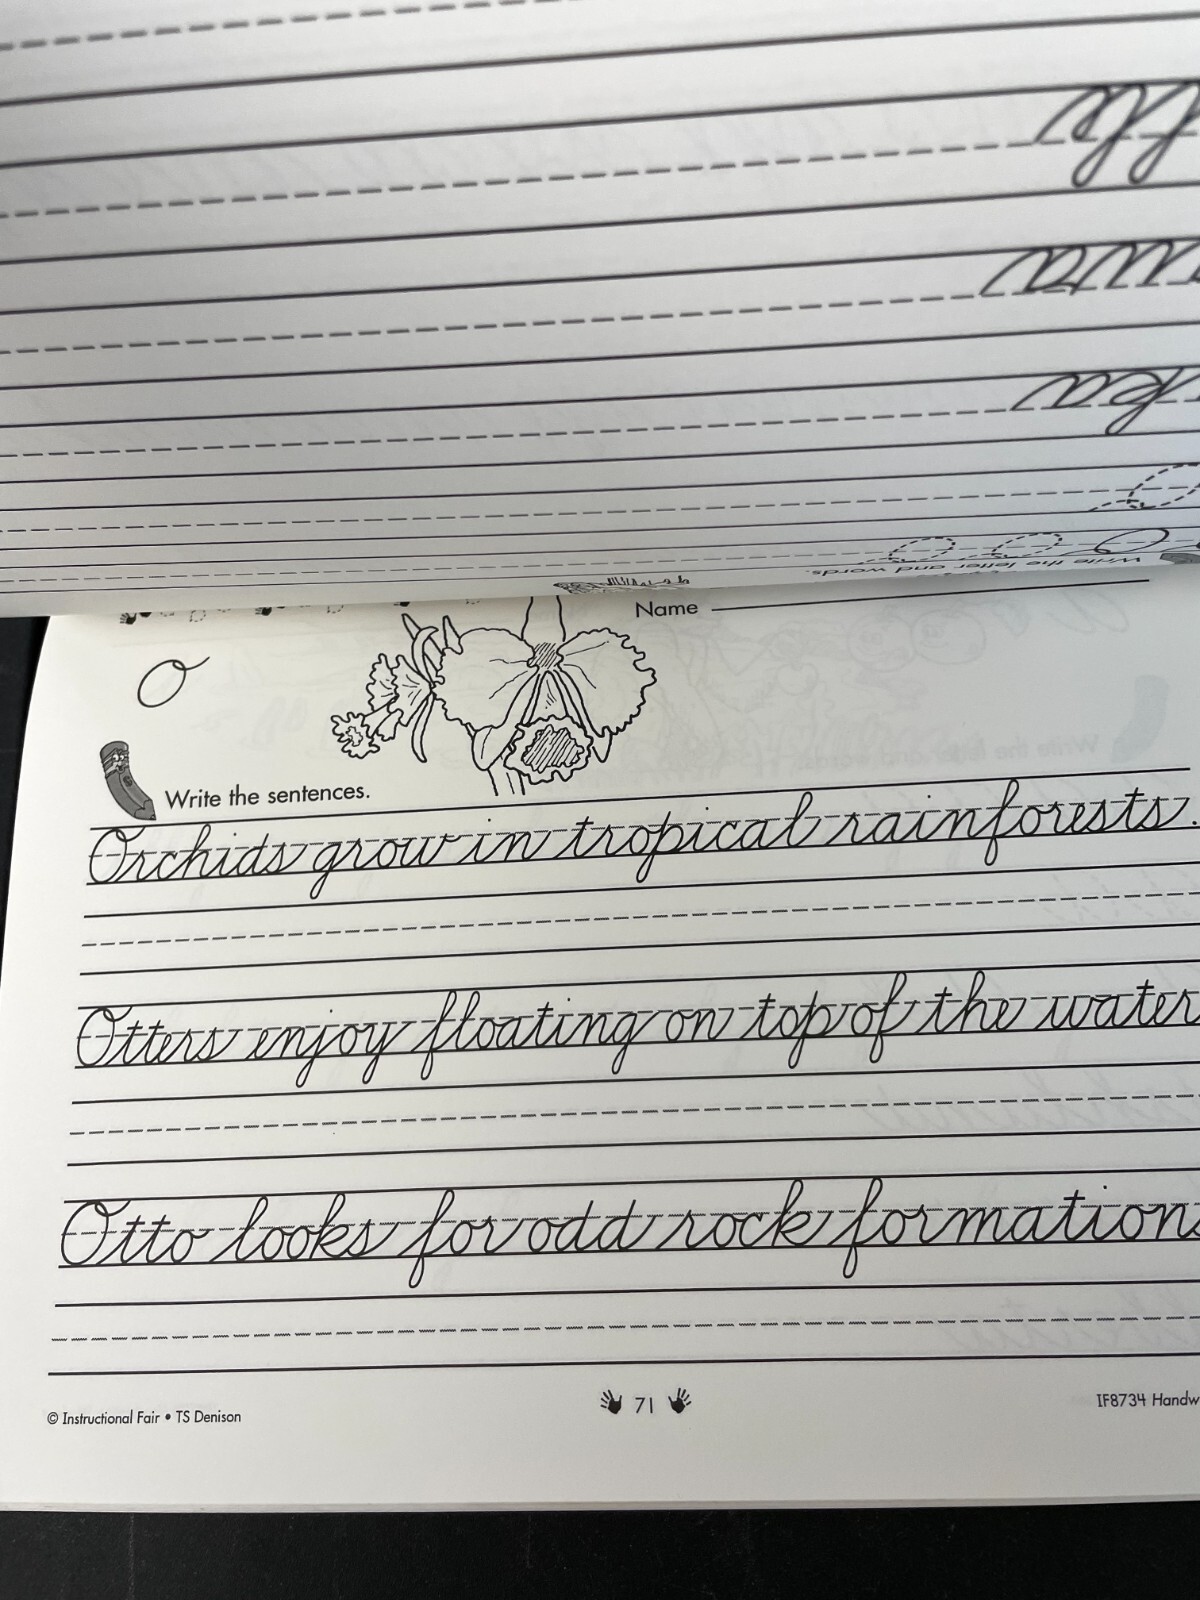 Write the letter and words.
Name
O
Write the sentences.
Orchids grow in tropical rainforests.
Otters enjoy floating on top of the water
Otto looks for odd rock formations
© Instructional Fair • TS Denison
71
IF8734 Handw